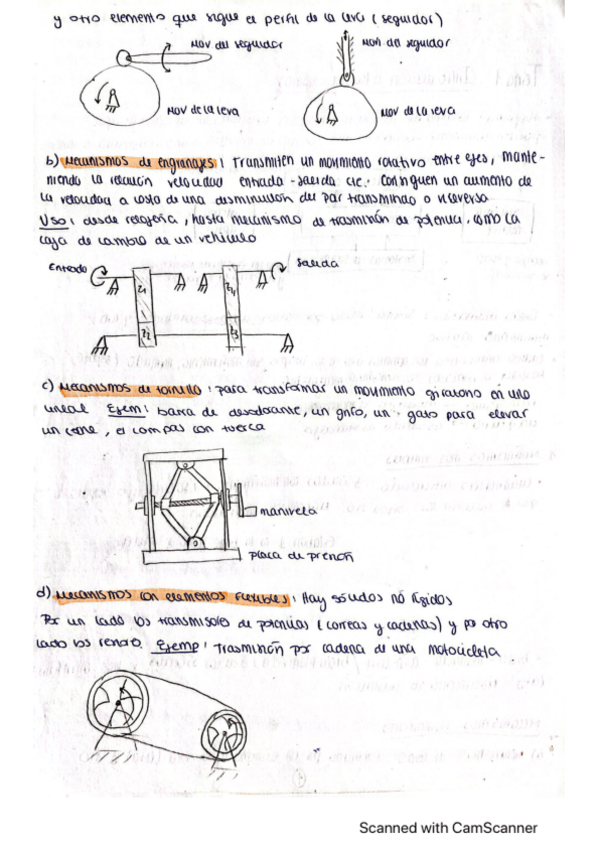 y otro elemento que sigue el perfil de la leva (seguidor)
Mov del seguidor
Mov del seguidor
Mov de la leva
Mov de la leva
b) Mecanismos de engranajes: Transmiten un movimiento rotativo entre ejes, mante-
niendo la relación velocidad entrada-salida cte. Consiguen un aumento de
la velocidad a costa de una disminución del par transmitido o viceversa
Uso: desde relojería, hasta mecanismo de trasmisión de potencia, como la
caja de cambio de un vehículo
Entrada
Salida
z1
z4
z2
z3
c) Mecanismos de tornillo: para transformar un movimiento giratorio en uno
lineal Ejem: barra de desodorante, un grifo, un gato para elevar
un coche, el compas con tuerca
manivela
placa de presión
d) Mecanismos con elementos flexibles: Hay sólidos no rígidos
Por un lado los transmisores de potencias (correas y cadenas) y por otro
lado los resorte. Ejemp: Trasmisión por cadena de una motocicleta
Scanned with CamScanner